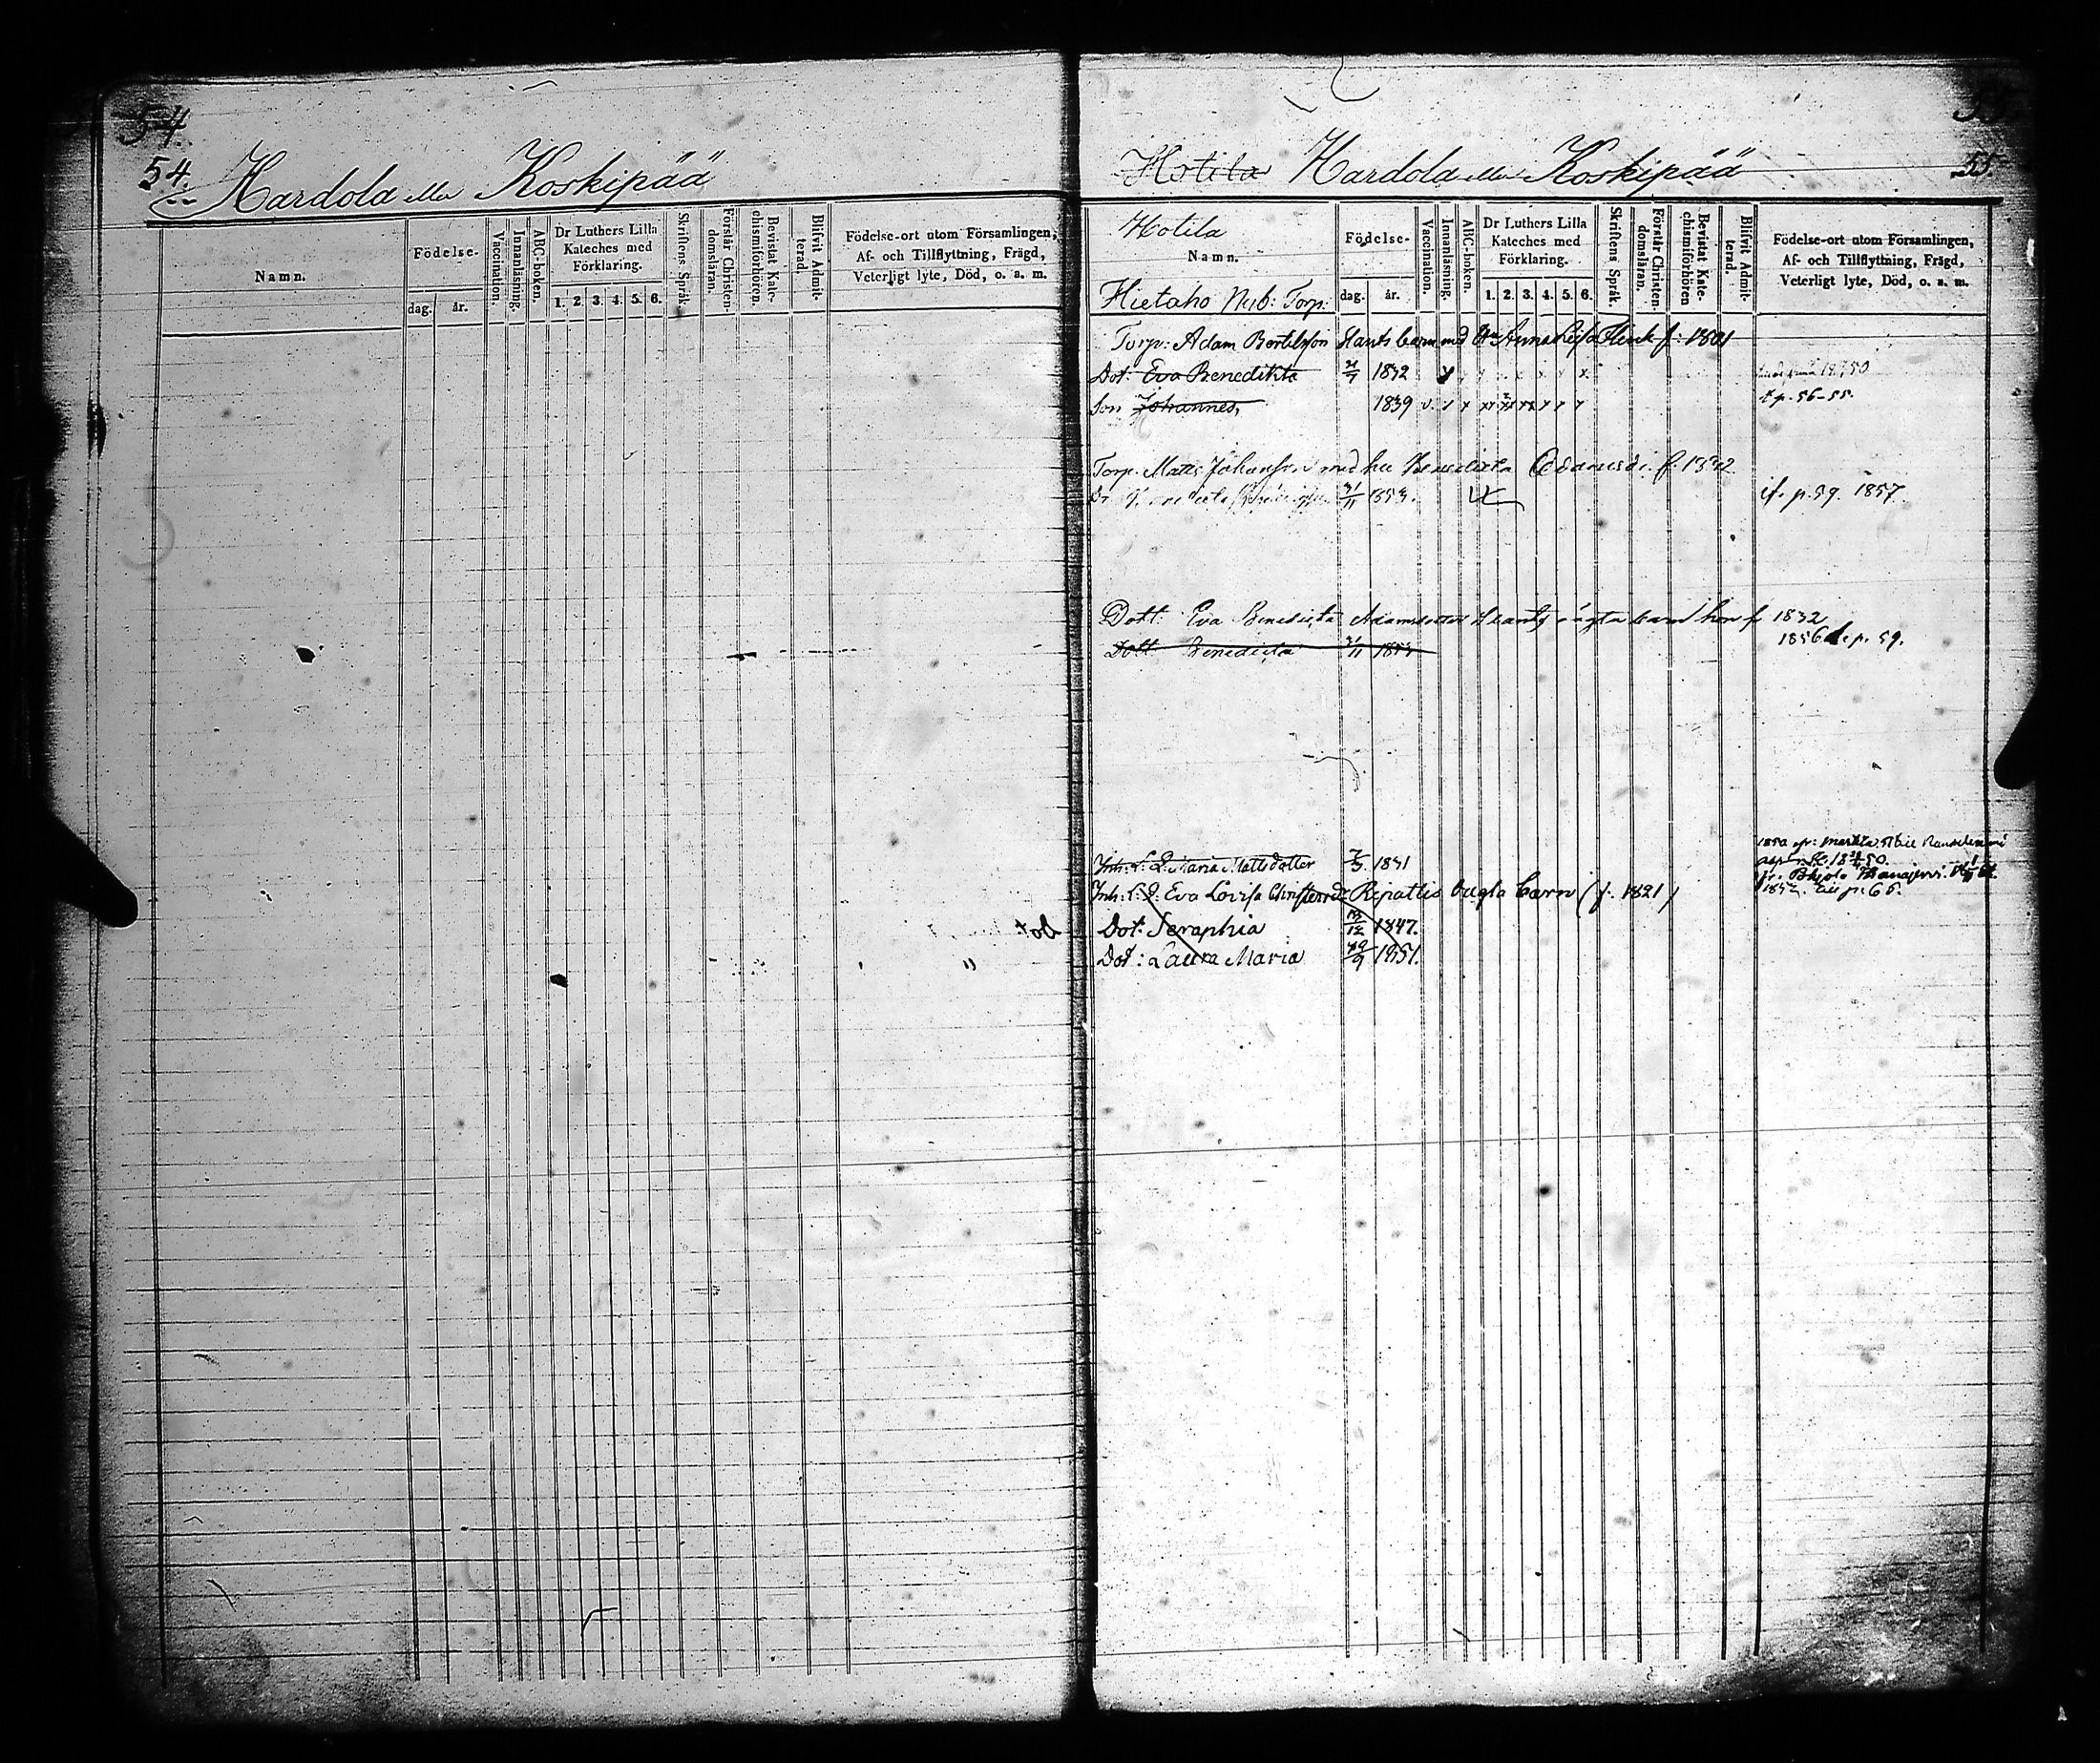 54.
54. Hardola eller Koskipää
Namn.
Födelse-
dag. år.
Vaccination.
Innanläsning.
ABC-boken.
Dr Luthers Lilla
Kateches med
Förklaring.
1. 2. 3. 4. 5. 6.
Skriftens Språk.
Förstår Christen-
domsläran.
Bevistat Kate-
chismiförhören.
Blifvit Admit-
terad.
Födelse-ort utom Församlingen,
Af- och Tillflyttning, Frägd,
Veterligt lyte, Död, o. s. m.
55
Hotila Hardola eller Koskipää 55.
Hotila
Namn.
Hietaho Nyb: Torp:
Födelse-
dag. år.
Vaccination.
Innanläsning.
ABC-boken.
Dr Luthers Lilla
Kateches med
Förklaring.
1. 2. 3. 4. 5. 6.
Skriftens Språk.
Förstår Christen-
domsläran.
Bevistat Kate-
chismiförhören
Blifvit Admit-
terad.
Födelse-ort utom Församlingen,
Af- och Tillflyttning, Frägd,
Veterligt lyte, Död, o. s. m.
Torp: Adam Bertilsson Hants barn med Anna Lisa f: 1801
Dot: Eva Benedikta 1832
Son Johannes, 1839 v. t p. 56-55.
Torp. Matts Johansson med hu Benedikta Adamsdr. f. 1832
31/11 1853. if. p. 59. 1857.
Dott: Eva Benedicta Adamsdotter oägta barn hon f 1832
Dott Benedicta 31/11 1853 1856 p. 59.
Inh: Maria Mattsdotter 1831
Inh: Eva Lovisa Ripattis barn (f. 1821)
1852. p. 66.
Dot: Seraphia 1847.
Dot: Laura Maria 1851.